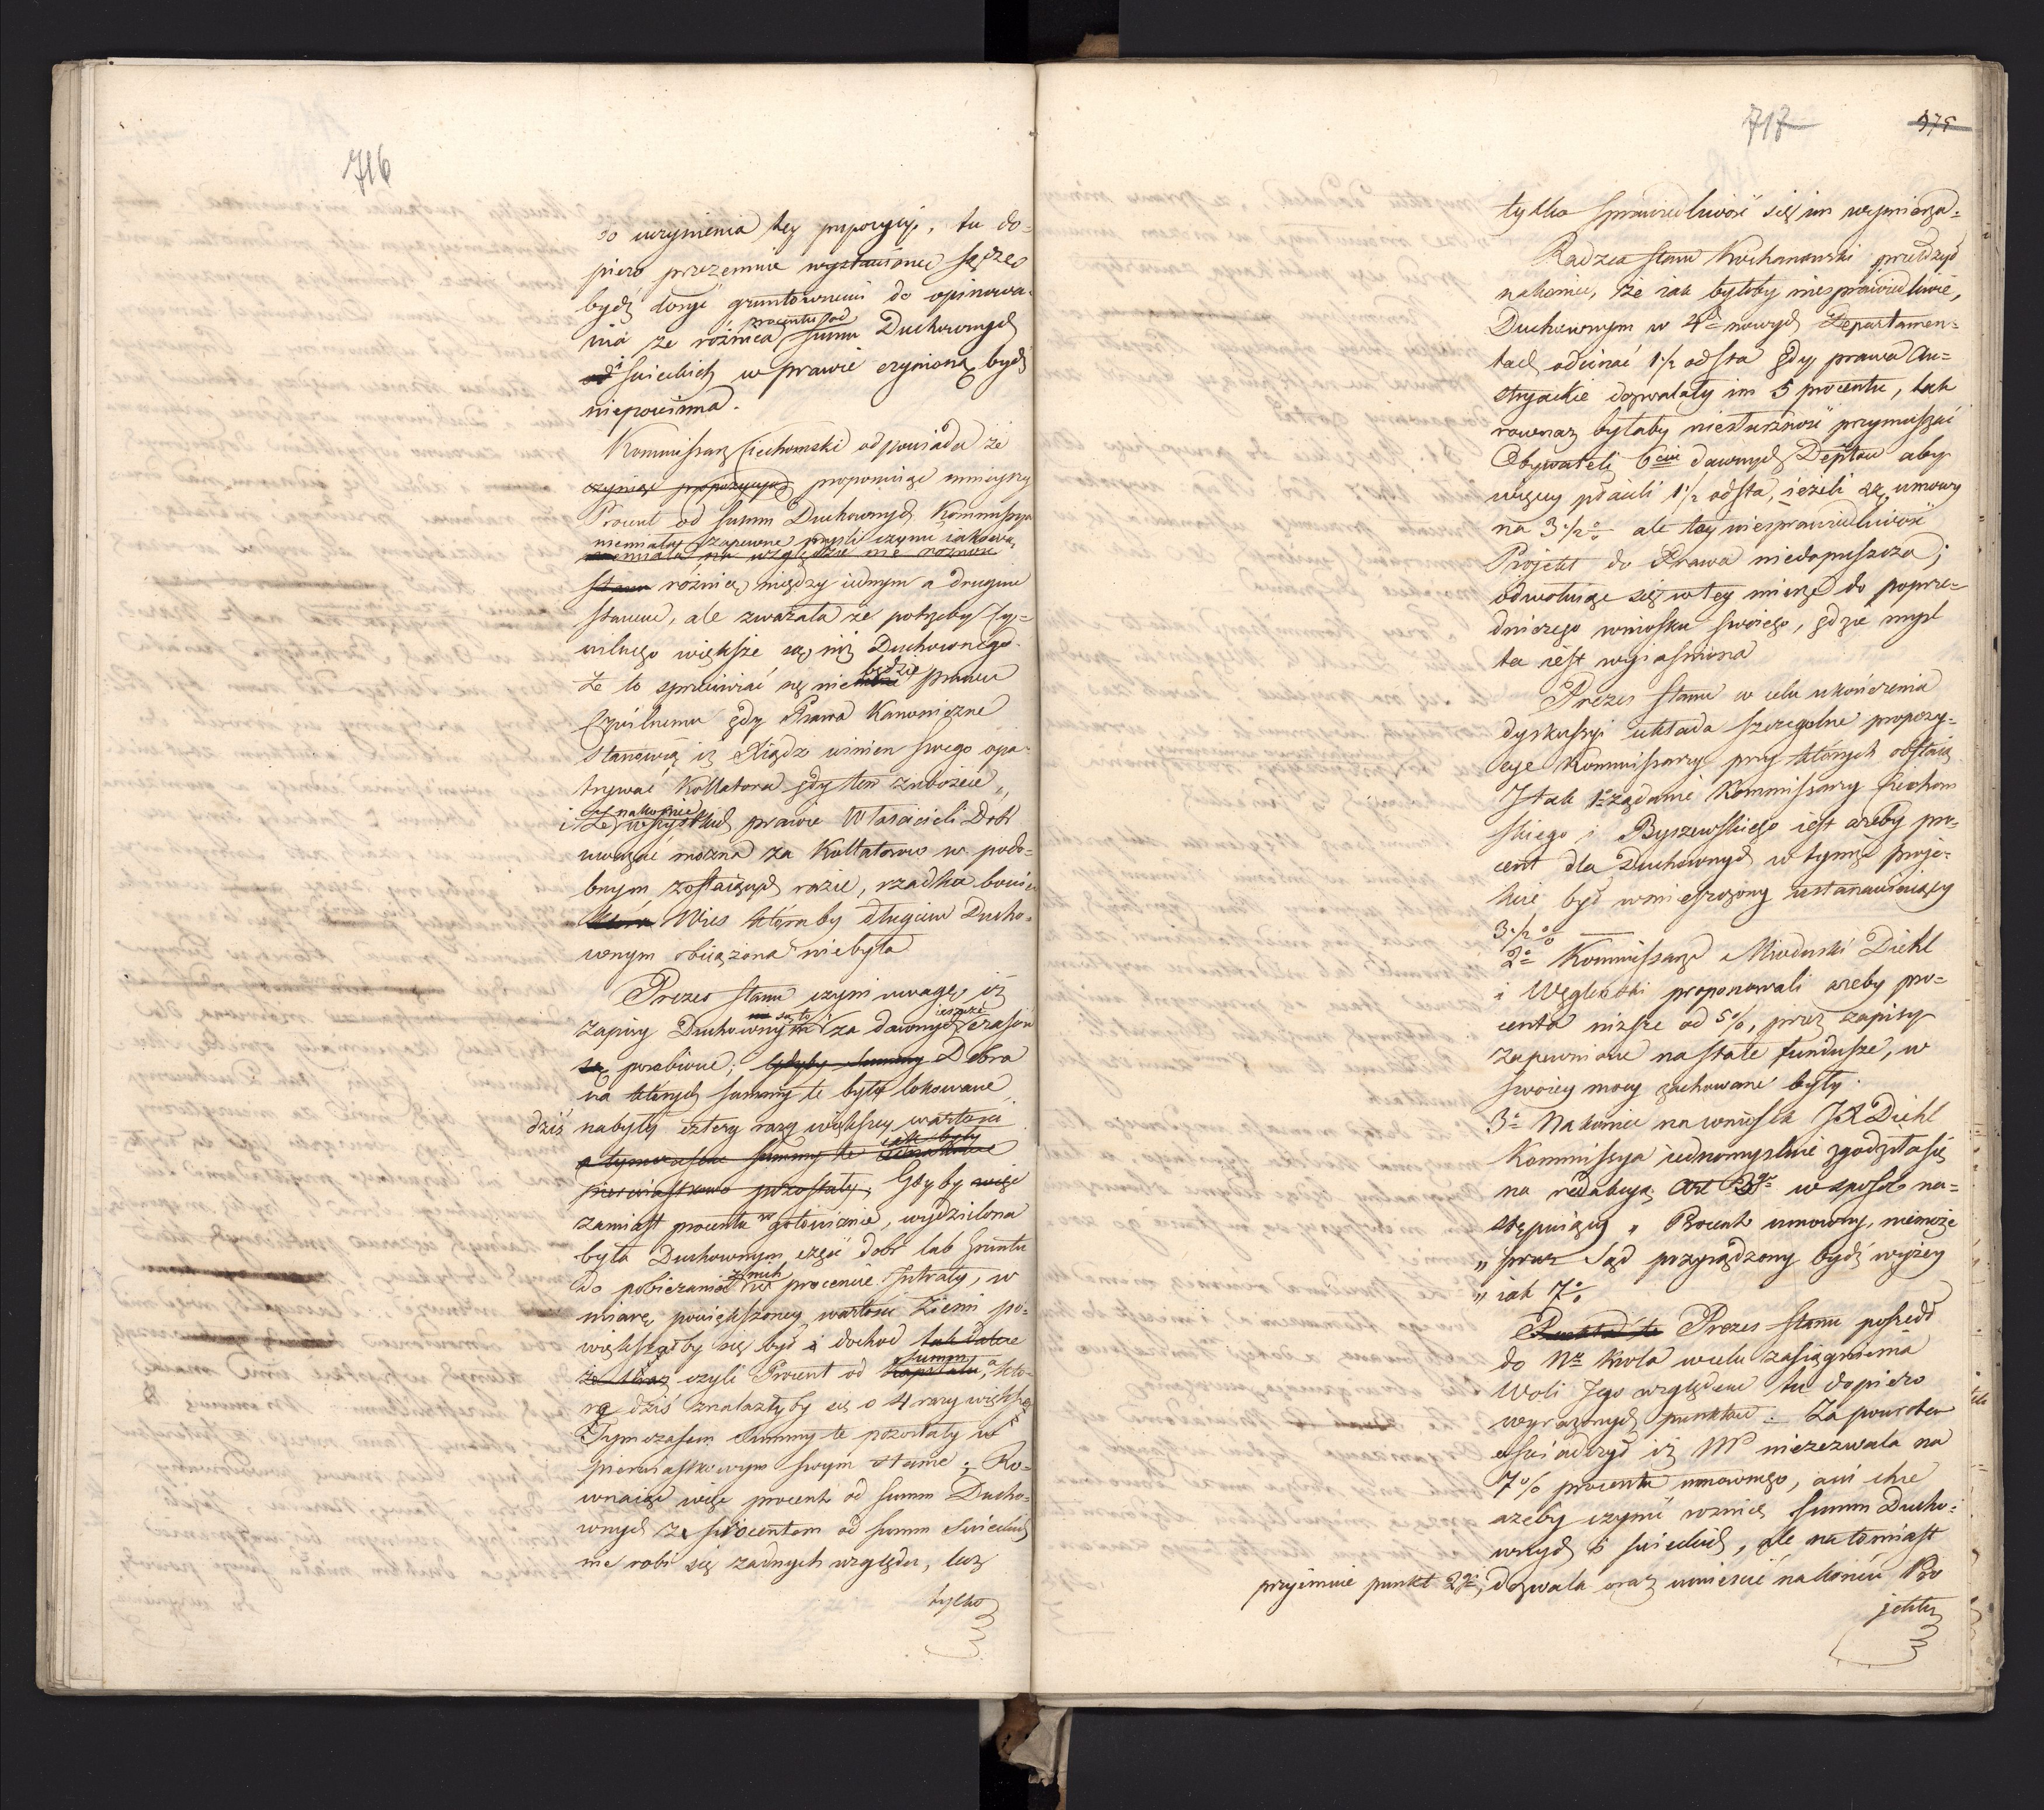 716
do uczynienia tey propozycyi, tu do=
piero przezemnie wystawionee sądzę
bydź dosyć gruntownemi do opinowa=
nia że różnica procentu od summ Duchownych
od i swieckich w prawie czynioną bydź
niepowinna.
Kommissarz Ciechomski odpowiada że
czyniąc propozycyą proponuiąc mnieyszy
Procent od summ Duchownych Kommissya
niemiała zapewne myśli czynić iakową
niemiała na względzie nie rożność
stanu różnicę między iednym a drugim
stanem, ale zważała że potrzeby Cy=
wilnego większe są niż Duchownego.
Że to sprzeciwiać się nie będzie prawu
Cywilnemu gdy Prawa Kanoniczne
stanowią iż Xiądz winien swego opa=
trywać Kollatora gdy ten zubożeie,
i że nakoniec wszystkich prawie Właścicieli Dobr
uważać można za Kollatorow w podo=
bnym zostaiących razie, rzadka bowiem
która Wies któraby długiem Ducho=
wnym obciążona niebyła
Prezes stanu czyni uwagę iż
zapisy Duchownym są to za dawnych ieszcze czasow
są porobione; gdyby summy Dobra
na których summy te były lokowane
dziś nabyły cztery razy większey wartości
a tymczasem summy te iak były
pierwiastkowo pozostały. Gdyby więc
zamiast procentu w gotowiznie, wydzielona
była Duchownym część dobr lub gruntu
do pobierania z nich w procencie Intraty, w
miarę powiększoney wartości Ziemi po=
większałby się był i dochod tak dalece
że teraz czyli Procent od kapitału summ, a któ=
rę dziś znalazłyby się o 4 razy większe
Tymczasem summy te pozostały w
pierwiastkowym swym stanie; Ro=
wnaiąc więc procent od summ Ducho=
wnych ze procentem od summ Swieckich
nie robi się żadnych względu, lecz
tylko
717
375
tylko sprawiedliwość się im wymierza=
Radzca stanu Kochanowski twierdzył
nakoniec, że iak byłoby niesprawiedliwie,
Duchownym w 4ch nowych Departamen=
tach odcinać 1 1/2 od sta gdy prawa Au=
stryackie dozwalały im 5 procentu, tak
rownaż byłaby niesłuszność przymuszać
Obywateli 6ciu dawnych Deptow aby
więcey płacili 1 1/2 od sta, ieżeli są umowy
na 3 1/2 % ale tey niesprawiedliwość
Projekt do Prawa niedopuszcza;
odwołuiąc się w tey mierze do poprze=
dniczego wniosku swoiego, gdzie myśl
ta iest wyiasniona
Prezes stanu w celu ukończenia
dyskussyi układa szczegolne propozy=
cye Kommissarzy przy których obstaią
I tak 1o żądanie Kommissarzy Ciechom
skiego i Byszewskiego iest ażeby pro=
cent dla Duchownych w tymże proje=
kcie był umieszczony ustanawiaiący
3 1/2 %
2o Kommissarze Mioduski Diehl
i Węgleński proponowali ażeby pro=
centa niższe od 5%, przez zapisy
zapewnione na stałe fundusze, w
swoiey mocy zachowane były.
3o Nakoniec na wniosek JP Diehl
Kommissya iednomyslnie zgodziła się
na redakcyą Art 3go w sposob na=
stępuiący „ Procent umowny, niemoże
„ przez Sąd przysądzony bydź wyżey
„ iak 7%
Punkta te Prezes stanu poszedł
do No Krola w celu zasiągnienia
Woli Jego względem tu dopiero
wyrażonych punktow. Za powrotem
oświadczył iż NP niezezwala na
7% procentu umownego, ani chce
ażeby czynić roznicę summ Ducho=
wnych i swieckich, ale natomiast
przyimuie punkt 2gi, dozwala oraz umieścić na końcu Pro
jektu